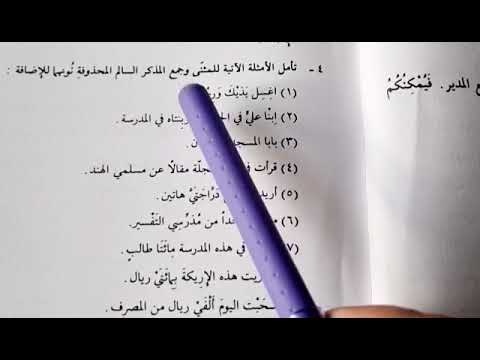 ٤ - تأمل الأمثلة الآتية للمثنى وجمع المذكر السالم المحذوفةِ نُونهما للإضافة :
(١) اغسِل يَدَيْكَ
(٢) اِبْنَا عليٍّ في وبِنتاه في المدرسة .
(٣) بابا المسجد
(٤) قرأت مقالاً عن مسلمي الهند .
(٥) دَرَّاجَتَيَّ هاتين .
(٦) من مُدَرِّسِي التَّفْسير .
(٧) في هذه المدرسة مِائَتَا طالبٍ .
هذه الأريكةَ بِمِائَتَيْ ريال .
سَحَبْت اليومَ أَلْفَيْ ريال من المصرف .
المدير . فَيُمْكِنُكُمْ